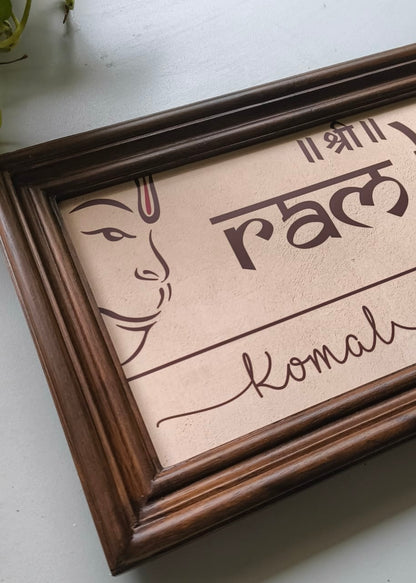 ॥श्री॥
ram
Komal